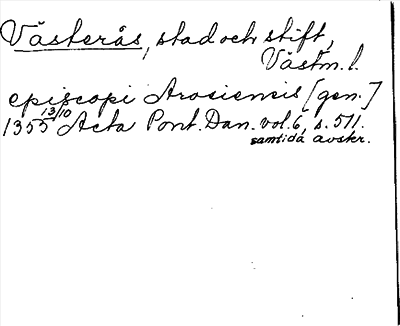 Västerås, stad och stift,
Västm. l.
episcopi Arosiensis [gen.]
1355 13/10 Acta Pont. Dan. vol. 6, s. 511.
samtida avskr.